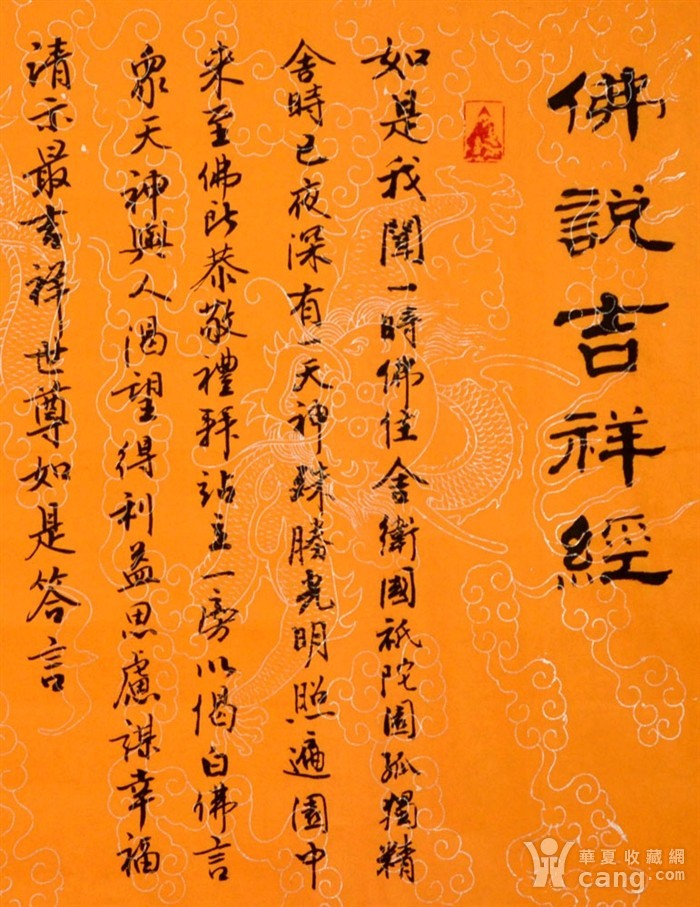 佛說吉祥經
如是我聞一時佛住舍衛國祇陀園孤獨精
舍時已夜深有一天神殊勝光明照遍園中
來至佛所恭敬禮拜站立一旁以偈白佛言
眾天神與人渴望得利益思慮謀幸福
請示最吉祥世尊如是答言
華夏收藏網
cang.com